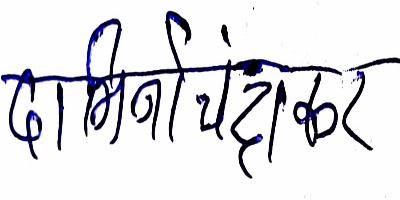 दामिनी चंद्राकर